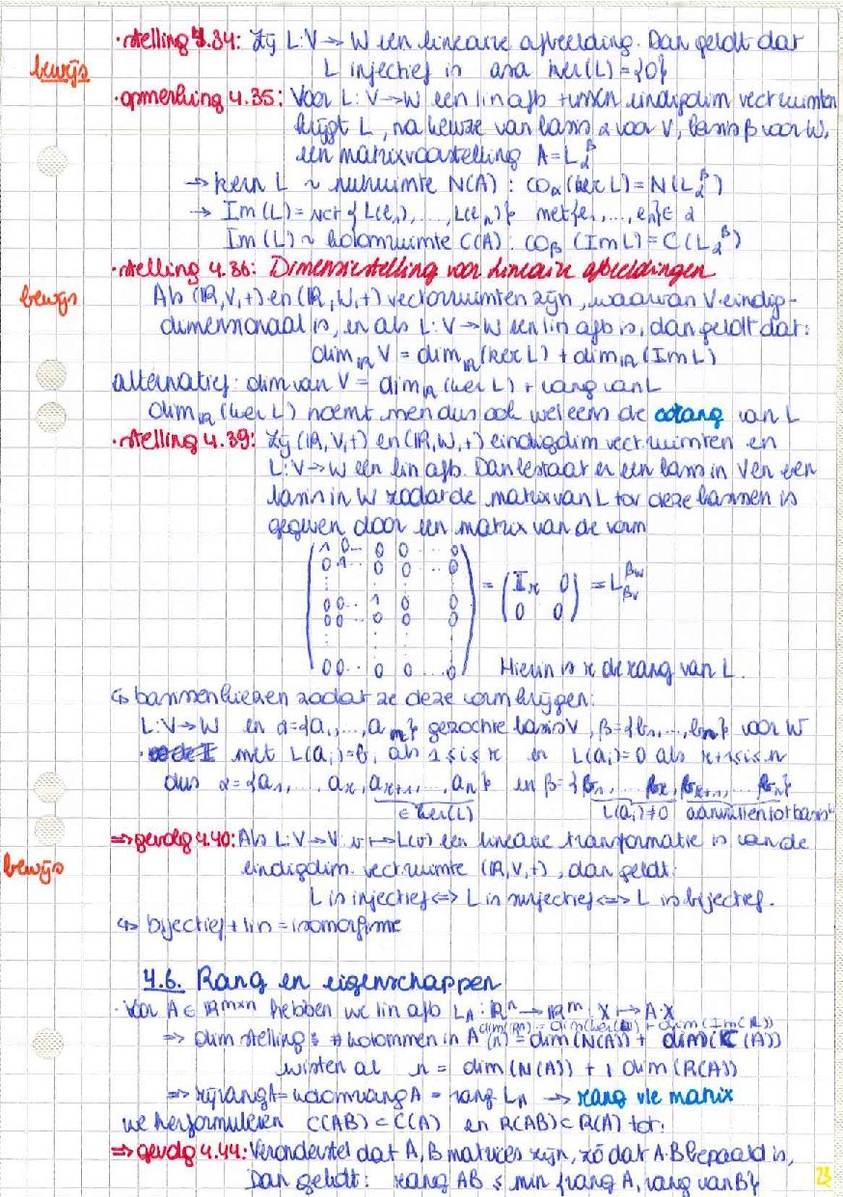 ·stelling 4.34: Zij L:V→W een lineaire afbeelding. Dan geldt dat
bewijs
L injectief is asa ker(L) = {0}
·opmerking 4.35: Voor L:V→W een lin afb tussen eindigdim vectruimten
krijgt L, na keuze van basis α voor V, basis β voor W,
een matrixvoorstelling A = L_α^β
→ kern L ~ nulruimte N(A) : co_α(ker L) = N(L_α^β)
→ Im(L) = vct{L(e₁),...,L(e_n)} met {e₁,...,e_n} ∈ α
Im(L) ~ kolomruimte C(A) : co_β(Im L) = C(L_α^β)
·stelling 4.36: Dimensiestelling voor lineaire afbeeldingen
bewijs
Als (ℝ,V,+) en (ℝ,W,+) vectorruimten zijn, waarvan V eindig-
dimensionaal is, en als L:V→W een lin afb is, dan geldt dat:
dim_ℝ V = dim_ℝ(ker L) + dim_ℝ(Im L)
alternatief: dim van V = dim_ℝ(ker L) + rang van L
dim_ℝ(ker L) noemt men dus ook wel eens de corang van L
·stelling 4.39: Zij (ℝ,V,+) en (ℝ,W,+) eindigdim vect.ruimten en
L:V→W een lin afb. Dan bestaat er een basis in V en een
basis in W zodat de matrix van L tov deze bassen is
gegeven door een matrix van de vorm
1 0.. 0 0 ... 0
0 1.. 0 0 ... 0
00.. 1 0 0
00.. 0 0 0
= (I_r 0) = L_{β_V}^{β_W}
0 0
00.. 0 0 ... 0
Hierin is r de rang van L.
↳ bassen kiezen zodat ze deze vorm krijgen:
L:V→W en α={a₁,...,a_n} gezochte basis V, β={b₁,...,b_m} voor W
met L(a_i)=b_i als 1≤i≤r en L(a_i)=0 als r+1≤i≤n
dus α={a₁,...a_r, a_{r+1},...a_n} en β={b₁,...b_r, b_{r+1},...b_n}
∈ker(L) L(a_i)≠0 aanvullen tot basis
⇒gevolg 4.40: Als L:V→V: v↦L(v) een lineaire transformatie is van de
bewijs
eindigdim. vect.ruimte (ℝ,V,+), dan geldt:
L is injectief ⇔ L is surjectief ⇔ L is bijectief.
↳ bijectief + lin = isomorfisme
4.6. Rang en eigenschappen
·Voor A ∈ ℝ^{m×n} hebben we lin afb L_A : ℝⁿ→ℝᵐ, X↦A·X
dim(ℝⁿ) = dim(ker(L)) + dim(Im(L))
⇒ dim stelling: # kolommen in A (n) = dim(N(A)) + dim(C(A))
wisten al n = dim(N(A)) + dim(R(A))
⇒ rijrang A = kolomrang A = rang L_A → rang v/e matrix
we herformuleren C(AB) ⊂ C(A) en R(AB) ⊂ R(A) tot:
⇒gevolg 4.44: Veronderstel dat A,B matrices zijn, zó dat A·B bepaald is,
Dan geldt: rang AB ≤ min{rang A, rang van B}
23